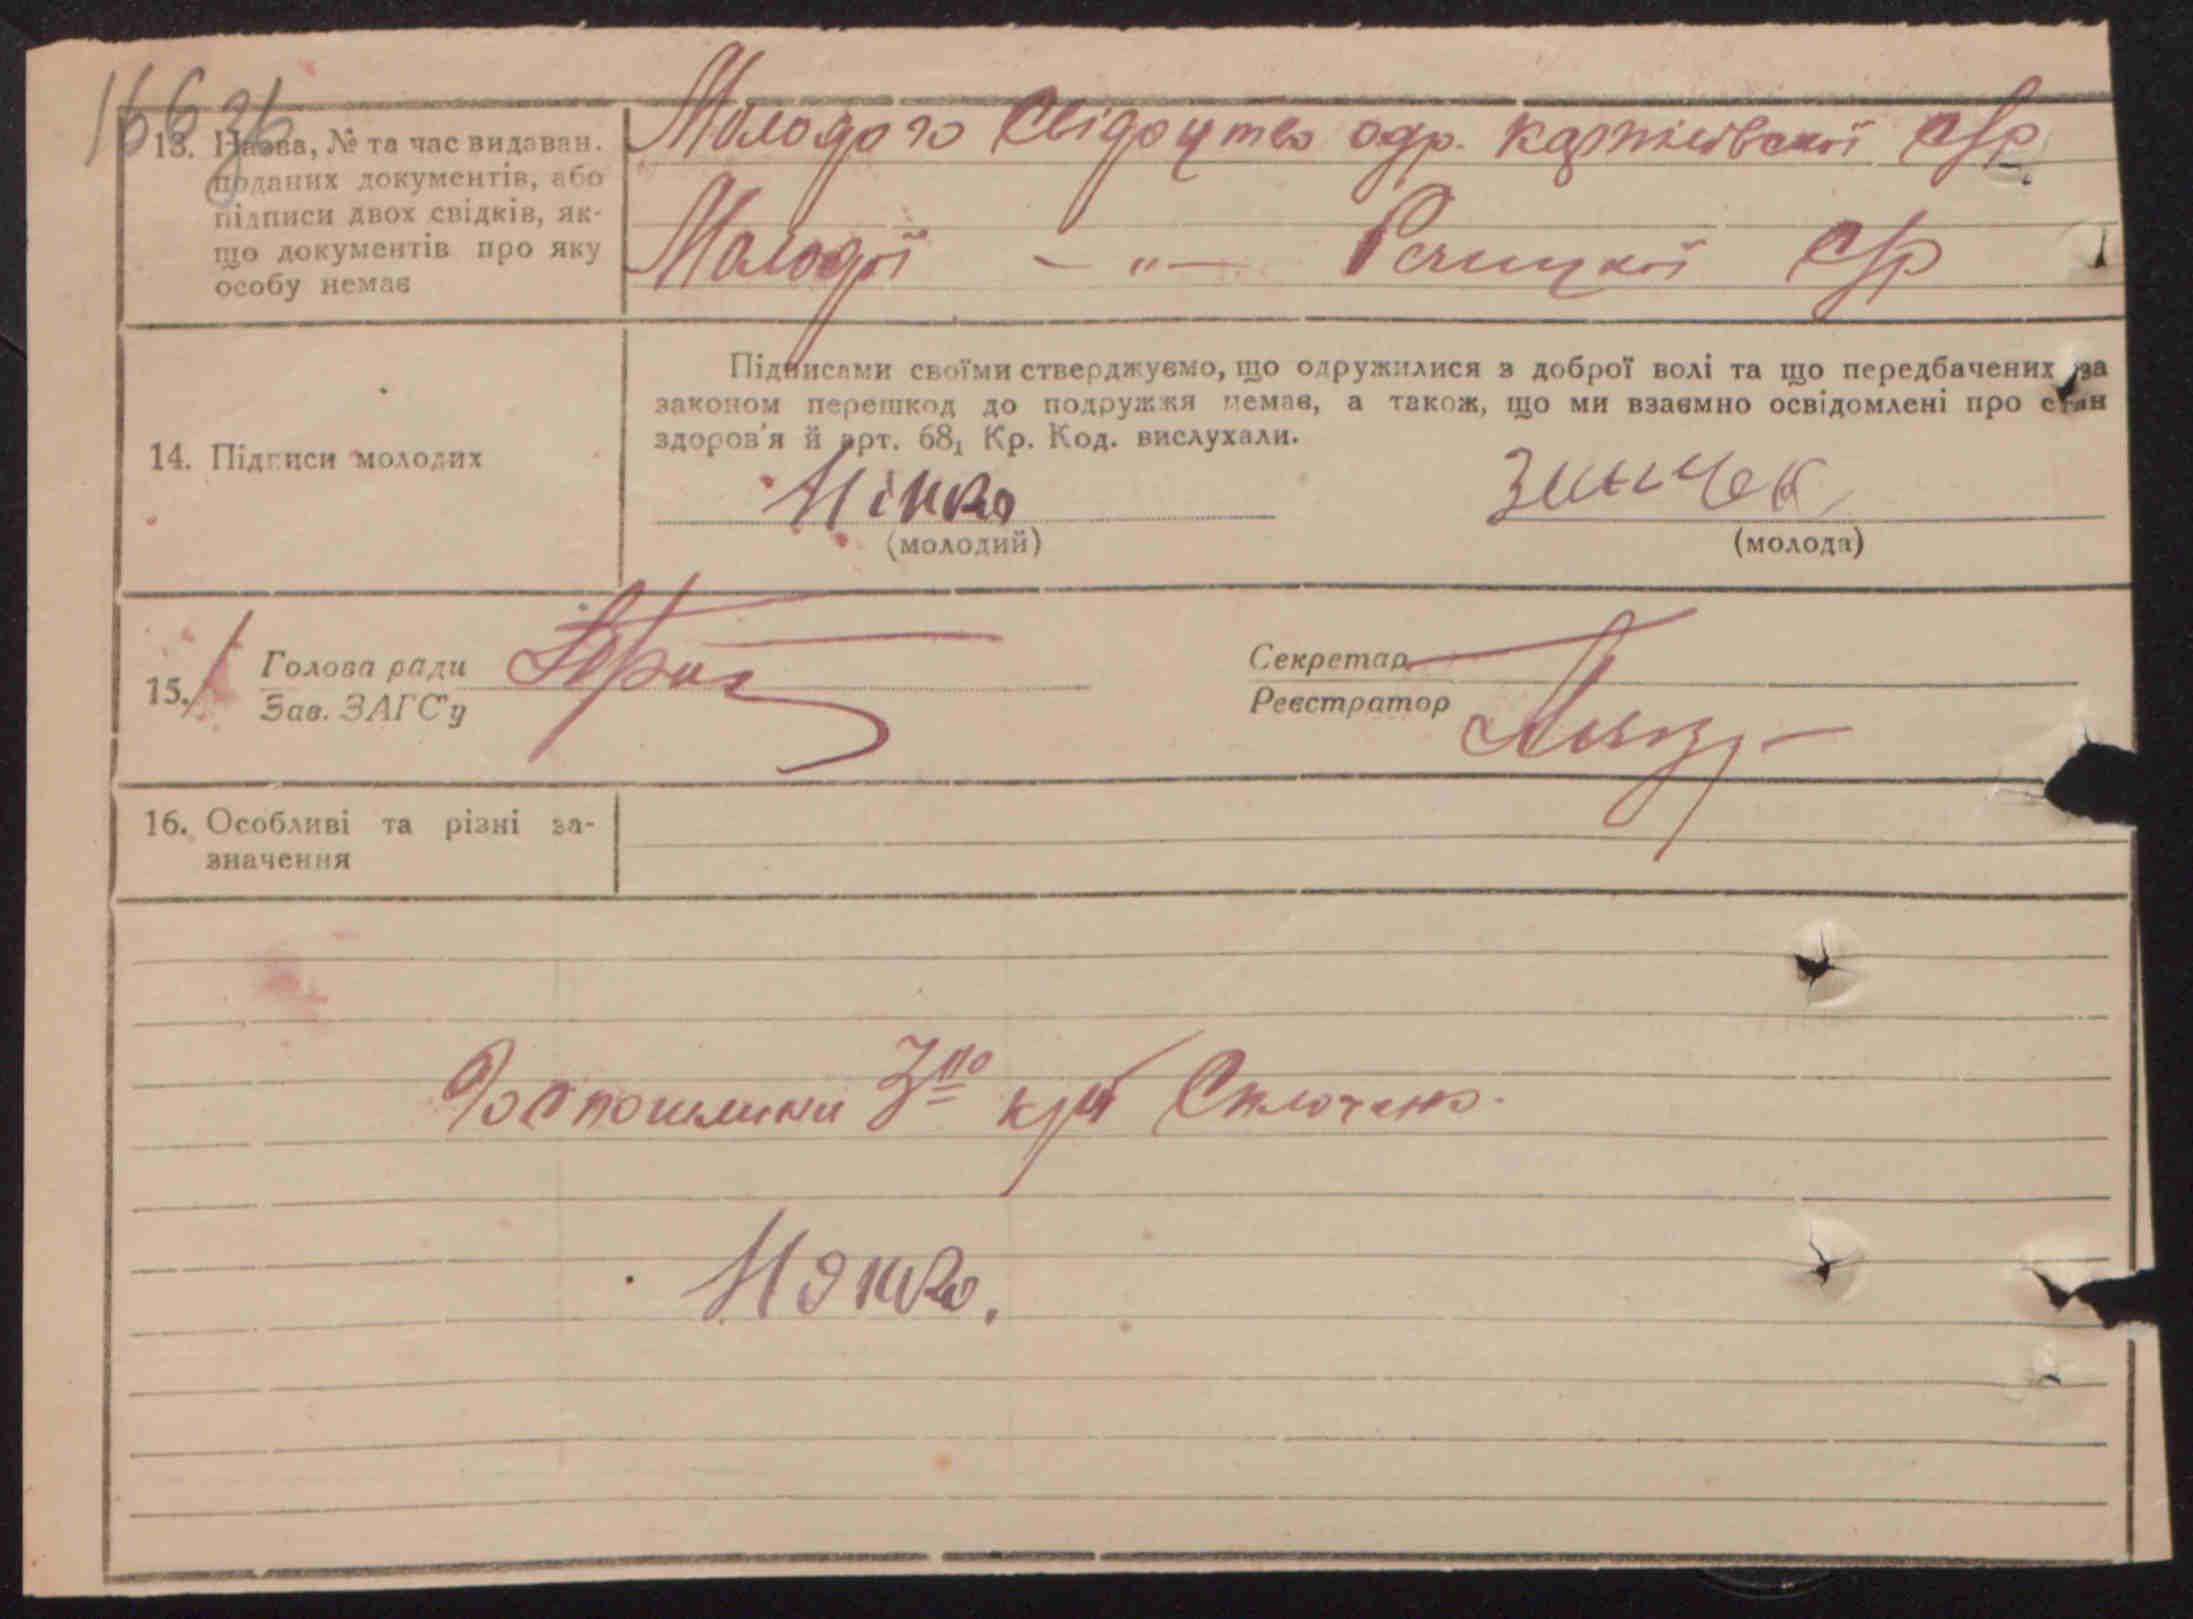 166 зв
13. Назва, № та час видаван.
поданих документів, або
підписи двох свідків, як-
що документів про яку
особу немає
Молодого Свідоцтво одр. с/р
Молодої — " — Речицкої с/р
14. Підписи молодих
Підписами своїми стверджуємо, що одружилися з доброї волі та що передбачених за
законом перешкод до подружжя немає, а також, що ми взаємно освідомлені про стан
здоров'я й арт. 68₁ Кр. Код. вислухали.
(молодий)
Зинчек
(молода)
15. Голова ради
Зав. ЗАГС'у
Секретар
Реєстратор
16. Особливі та різні за-
значення
Гостошлини 3 крб Сплочено.